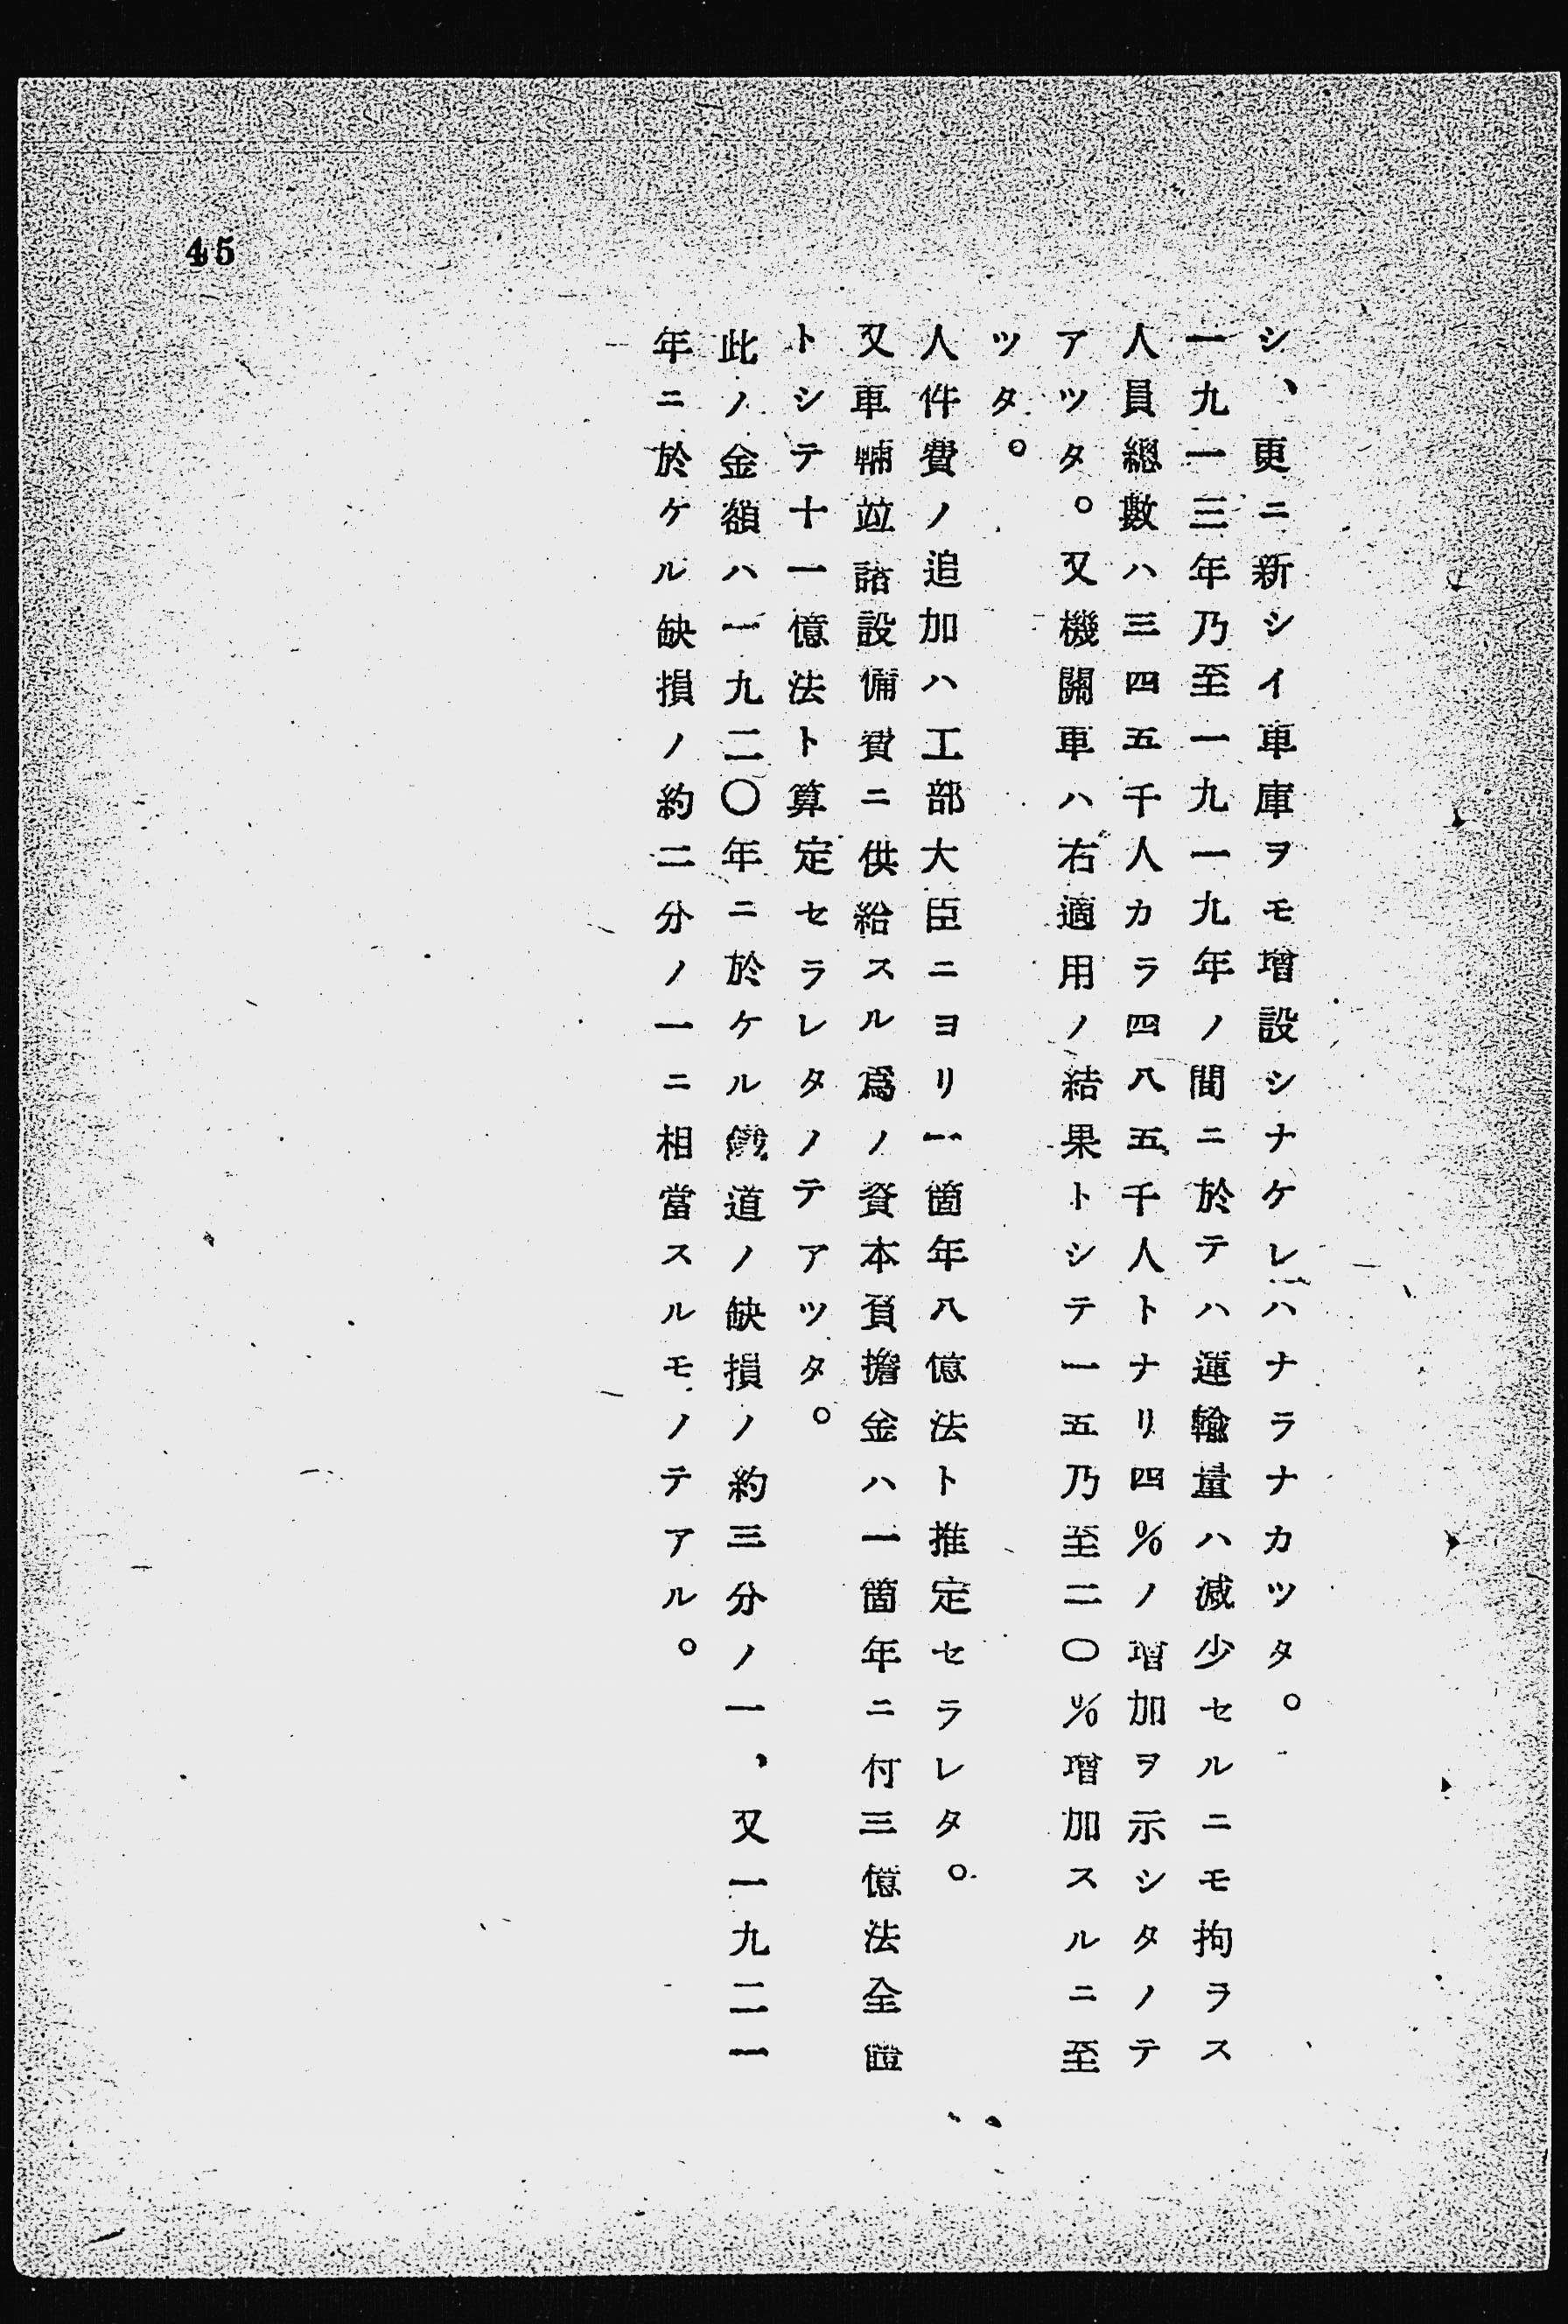 シ、更ニ新シイ車庫ヲモ增設シナケレハナラナカツタ。
一九一三年乃至一九一九年ノ間ニ於テハ運輸量ハ減少セルニモ拘ラス
人員總數ハ三四五千人カラ四八五千人トナリ四%ノ增加ヲ示シタノテ
アツタ。又機關車ハ右適用ノ結果トシテ一五乃至二〇%增加スルニ至
ツタ。
人件費ノ追加ハ工部大臣ニヨリ一箇年八億法ト推定セラレタ。
又車輛竝諸設備費ニ供給スル爲ノ資本負擔金ハ一箇年ニ付三億法全體
トシテ十一億法ト算定セラレタノテアツタ。
此ノ金額ハ一九二〇年ニ於ケル鐵道ノ缺損ノ約三分ノ一、又一九二一
年ニ於ケル缺損ノ約二分ノ一ニ相當スルモノテアル。
45